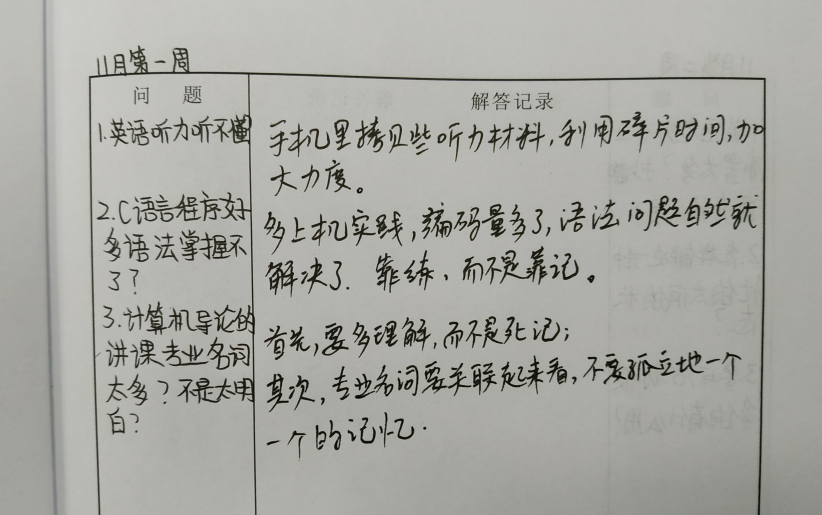 11月第一周
问 题
解答记录
1.英语听力听不懂
手机里拷贝些听力材料,利用碎片时间,加
大力度。
2.C语言程序好
多语法掌握不
了?
多上机实践,编码量多了,语法问题自然就
解决了.靠练、而不是靠记。
3.计算机导论的
讲课专业名词
太多?不是太明
白?
首先,要多理解,而不是死记;
其次,专业名词要关联起来看,不要孤立地一个
一个的记忆.